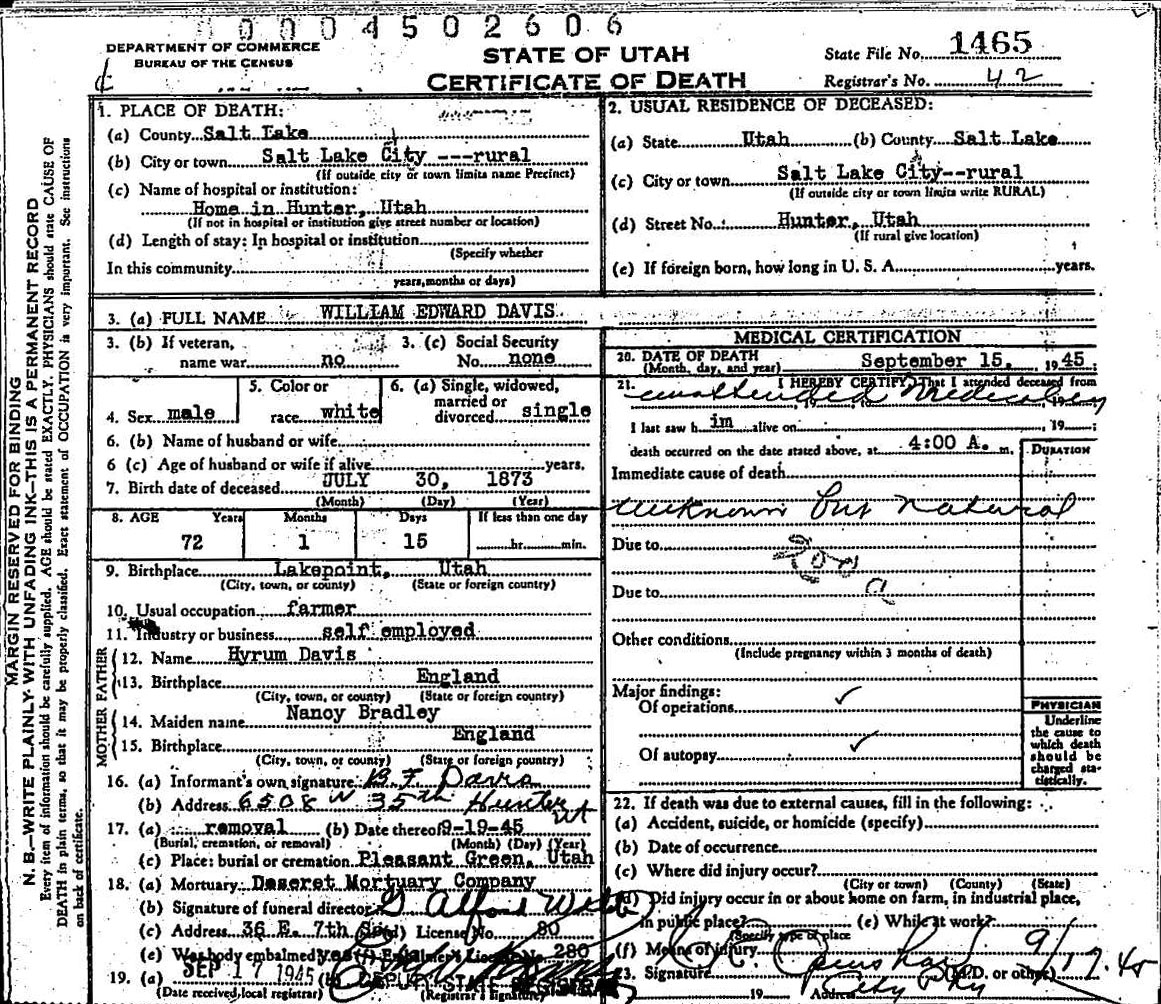 0004502606
DEPARTMENT OF COMMERCE
BUREAU OF THE CENSUS
STATE OF UTAH
CERTIFICATE OF DEATH
State File No. 1465
Registrar's No. 42
MARGIN RESERVED FOR BINDING
N. B.—WRITE PLAINLY WITH UNFADING INK—THIS IS A PERMANENT RECORD
Every item of information should be carefully supplied. AGE should be stated EXACTLY. PHYSICIANS should state CAUSE OF
DEATH in plain terms, so that it may be properly classified. Exact statement of OCCUPATION is very important. See instructions
on back of certificate.
1. PLACE OF DEATH:
(a) County Salt Lake
(b) City or town Salt Lake City ---rural
(If outside city or town limits name Precinct)
(c) Name of hospital or institution:
Home in Hunter, Utah
(If not in hospital or institution give street number or location)
(d) Length of stay: In hospital or institution
(Specify whether
In this community
years, months or days)
2. USUAL RESIDENCE OF DECEASED:
(a) State Utah (b) County Salt Lake
(c) City or town Salt Lake City--rural
(If outside city or town limits write RURAL)
(d) Street No. Hunter, Utah
(If rural give location)
(e) If foreign born, how long in U. S. A. years.
3. (a) FULL NAME WILLIAM EDWARD DAVIS
3. (b) If veteran, name war no
3. (c) Social Security No. none
4. Sex male
5. Color or race white
6. (a) Single, widowed, married or divorced single
6. (b) Name of husband or wife
6 (c) Age of husband or wife if alive years.
7. Birth date of deceased JULY 30, 1873
(Month) (Day) (Year)
8. AGE Years Months Days If less than one day
72 1 15 hr. min.
9. Birthplace Lakepoint, Utah
(City, town, or county) (State or foreign country)
10. Usual occupation farmer
11. Industry or business self employed
FATHER
12. Name Hyrum Davis
13. Birthplace England
(City, town, or county) (State or foreign country)
MOTHER
14. Maiden name Nancy Bradley
15. Birthplace England
(City, town, or county) (State or foreign country)
16. (a) Informant's own signature B F Davis
(b) Address 6508 W 35th Hunter Ut
17. (a) removal (b) Date thereof 9-19-45
(Burial, cremation, or removal) (Month) (Day) (Year)
(c) Place: burial or cremation Pleasant Green, Utah
18. (a) Mortuary Deseret Mortuary Company
(b) Signature of funeral director Alford
(c) Address 36 E. 7th So. (d) License No. 80
(e) Was body embalmed yes (f) Embalmer's License No. 280
19. (a) SEP 17 1945 (b) DEPUTY STATE REGISTRAR
(Date received, local registrar) (Registrar's signature)
MEDICAL CERTIFICATION
20. DATE OF DEATH
(Month, day, and year) September 15, 1945;
21. I HEREBY CERTIFY, That I attended deceased from
unattended Medically
I last saw him alive on , 19 ;
death occurred on the date stated above, at 4:00 A. m.
DURATION
Immediate cause of death
Unknown but Natural
Due to
Due to
Other conditions
(Include pregnancy within 3 months of death)
Major findings:
Of operations
Of autopsy
PHYSICIAN
Underline
the cause to
which death
should be
charged sta-
tistically.
22. If death was due to external causes, fill in the following:
(a) Accident, suicide, or homicide (specify)
(b) Date of occurrence
(c) Where did injury occur?
(City or town) (County) (State)
(d) Did injury occur in or about home on farm, in industrial place,
in public place? (e) While at work?
(Specify type of place
(f) Means of injury
23. Signature (M.D. or other) 9/17.45
19 Address